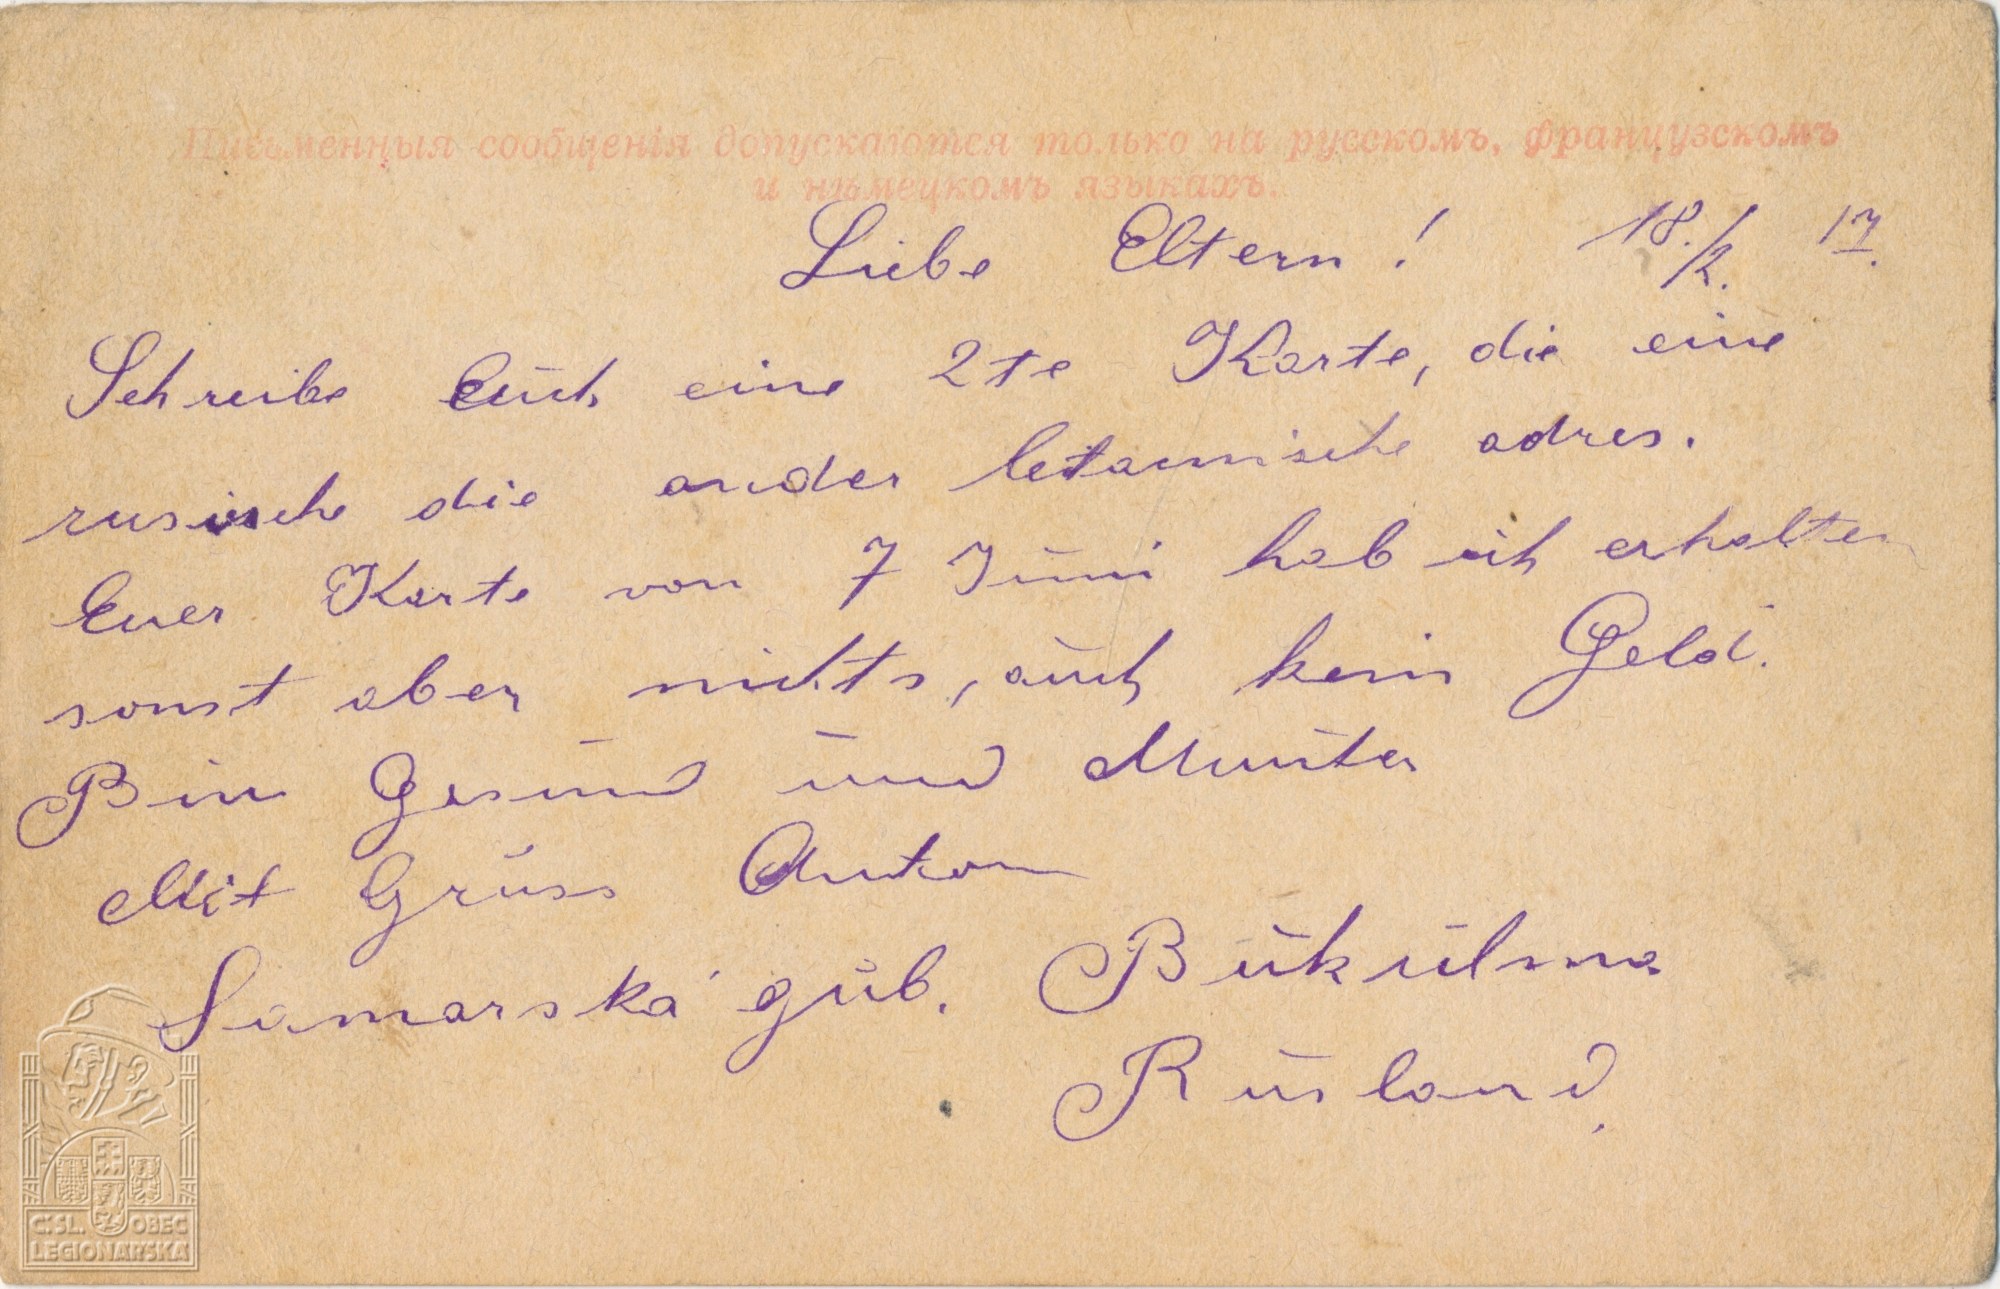 Письменныя сообщенія допускаются только на русскомъ, французскомъ
и нѣмецкомъ языкахъ.
Liebe Eltern! 18./2. 17.
Schreibe Euch eine 2te Karte, die eine
rusische die ander letainische adres.
Euer Karte von 7 Juni hab ich erhalten
sonst aber nichts, auch kein Geld.
Bin Gesund und Munter
Mit Grüss Anton
Samarská gub. Bukulma
Rusland.
C.SL. OBEC
LEGIONÁŘSKÁ